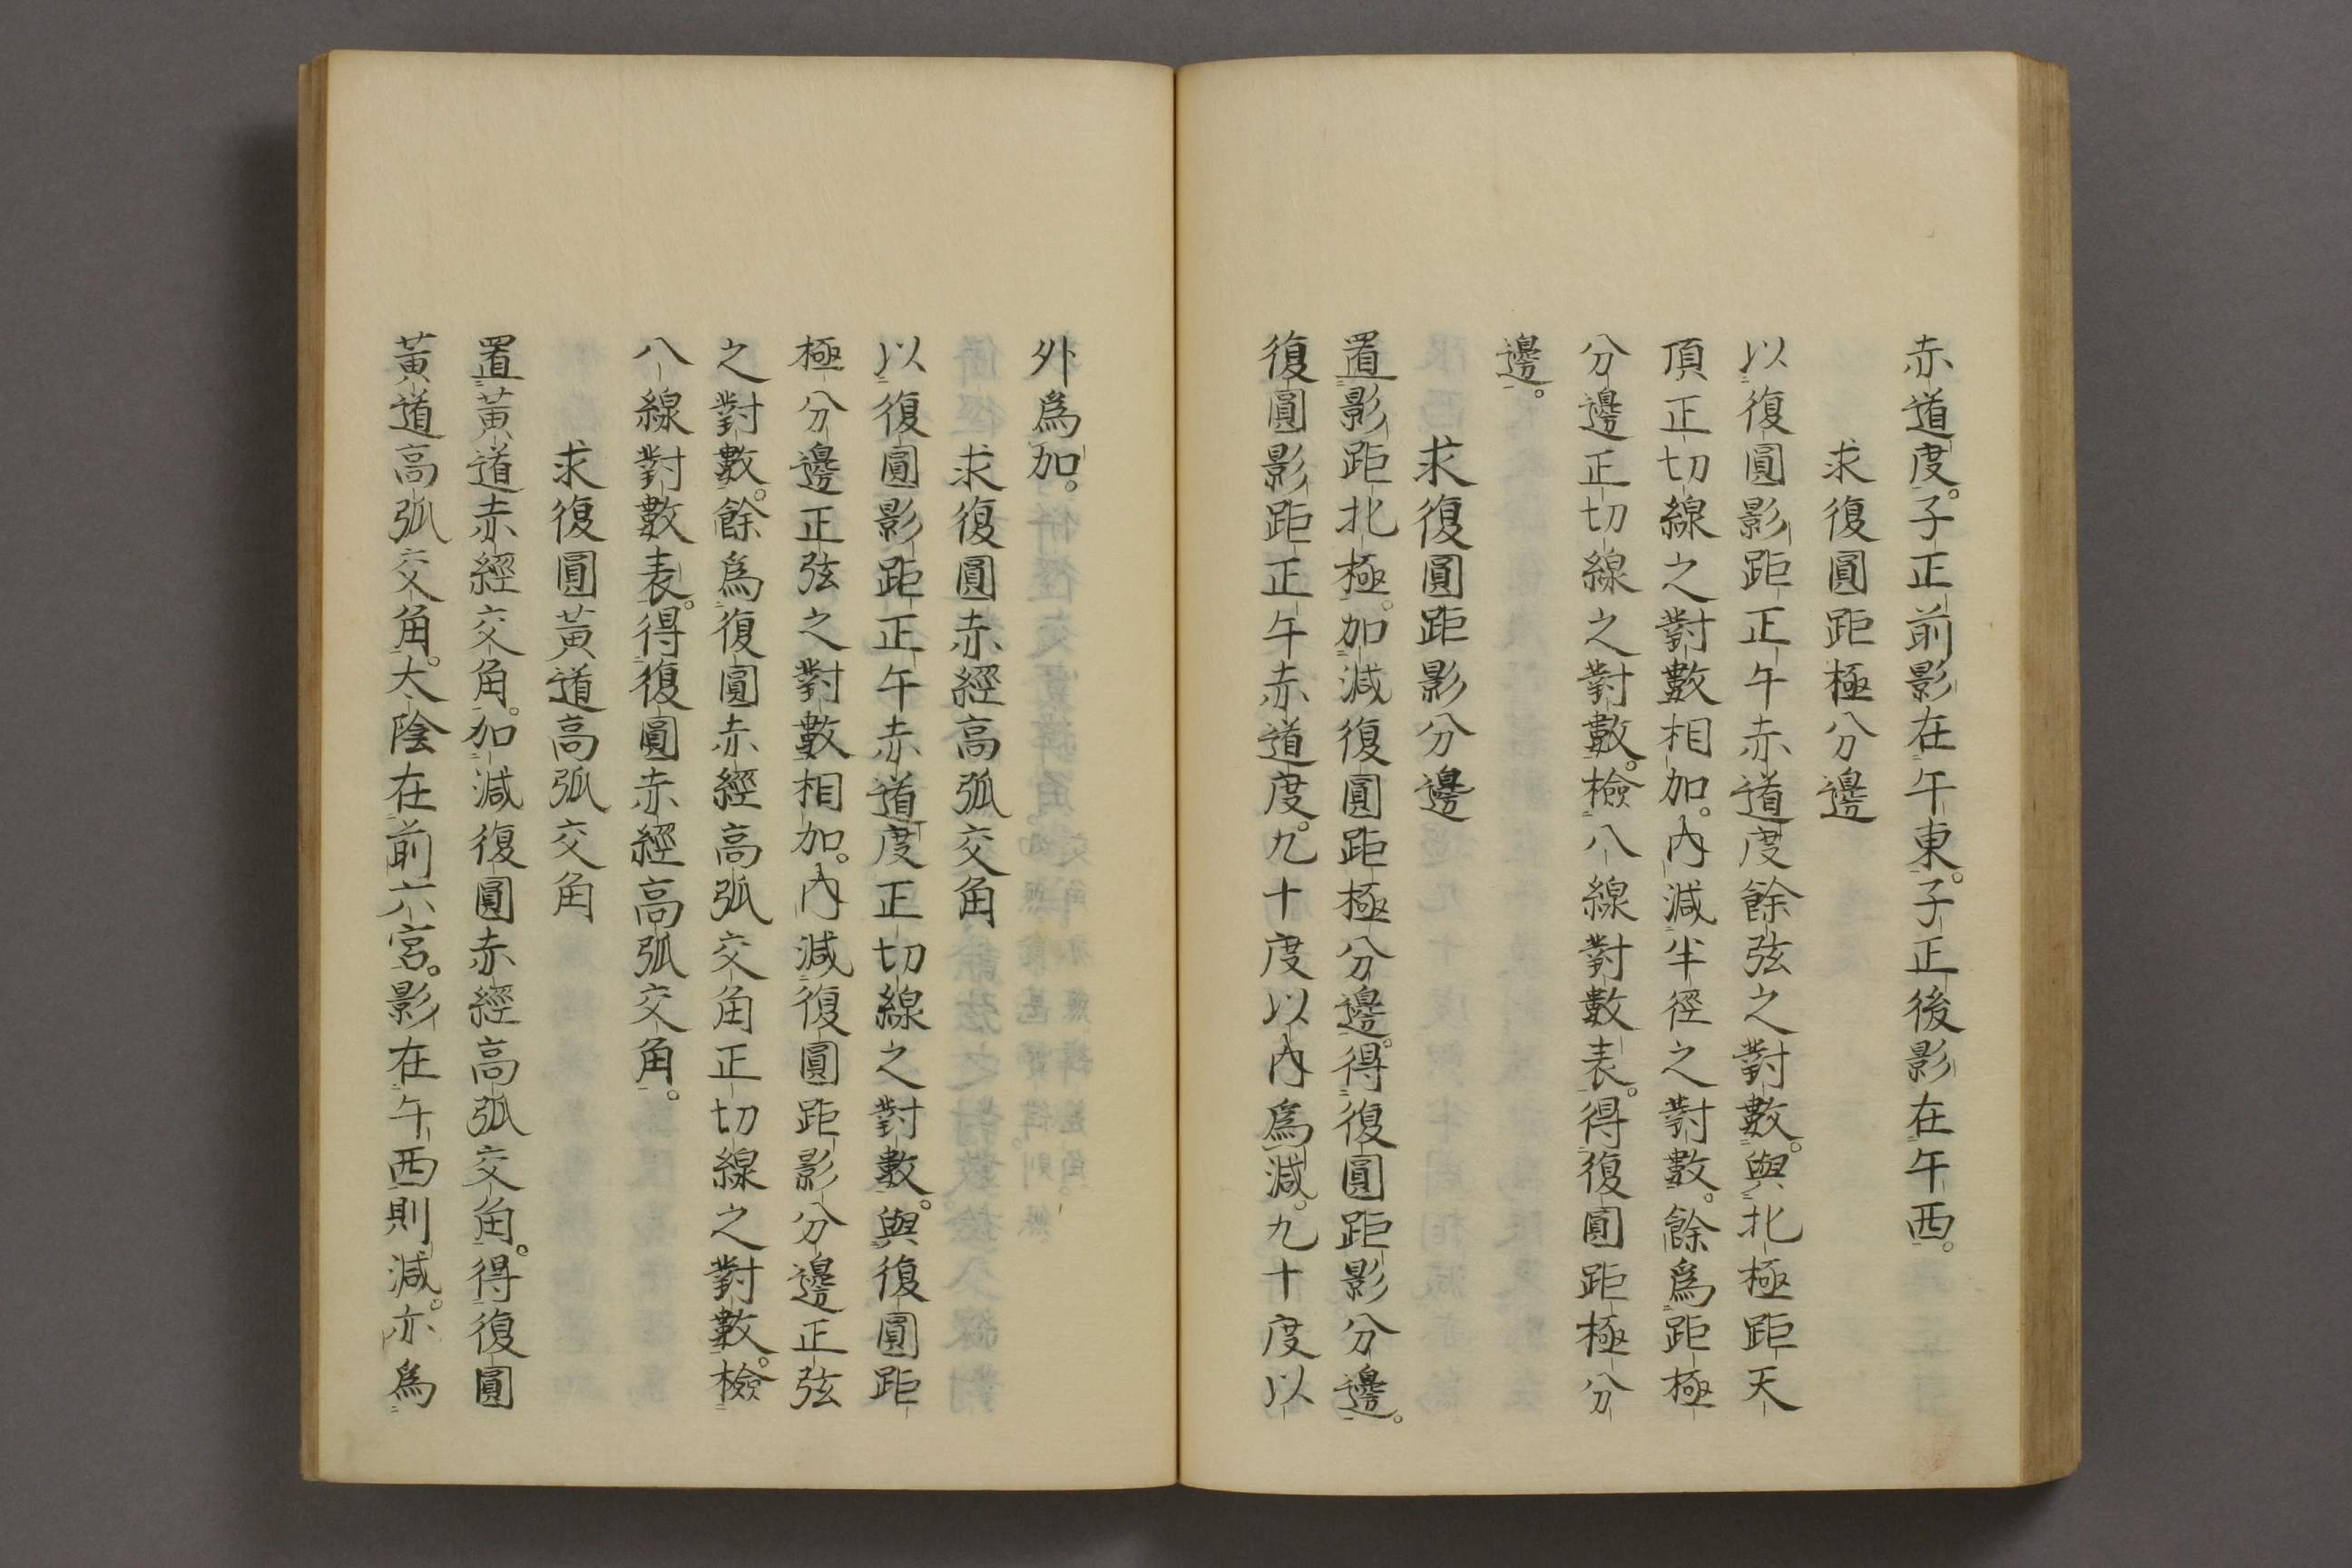 赤道度。子正前影在午東。子正後影在午西。
求復圓距極分邊
以復圓影距正午赤道度餘弦之對數。與北極距天
頂正切線之對數相加。內減半徑之對數。餘爲距極
分邊正切線之對數。檢八線對數表。得復圓距極分
邊。
求復圓距影分邊
置影距北極。加減復圓距極分邊。得復圓距影分邊。
復圓影距正午赤道度。九十度以內爲減。九十度以
外爲加。
求復圓赤經高弧交角
以復圓影距正午赤道度正切線之對數。與復圓距
極分邊正弦之對數相加。內減復圓距影分邊正弦
之對數。餘爲復圓赤經高弧交角正切線之對數。檢
八線對數表。得復圓赤經高弧交角。
求復圓黃道高弧交角
置黃道赤經交角。加減復圓赤經高弧交角。得復圓
黃道高弧交角。太陰在前六宮。影在午西則減。亦爲